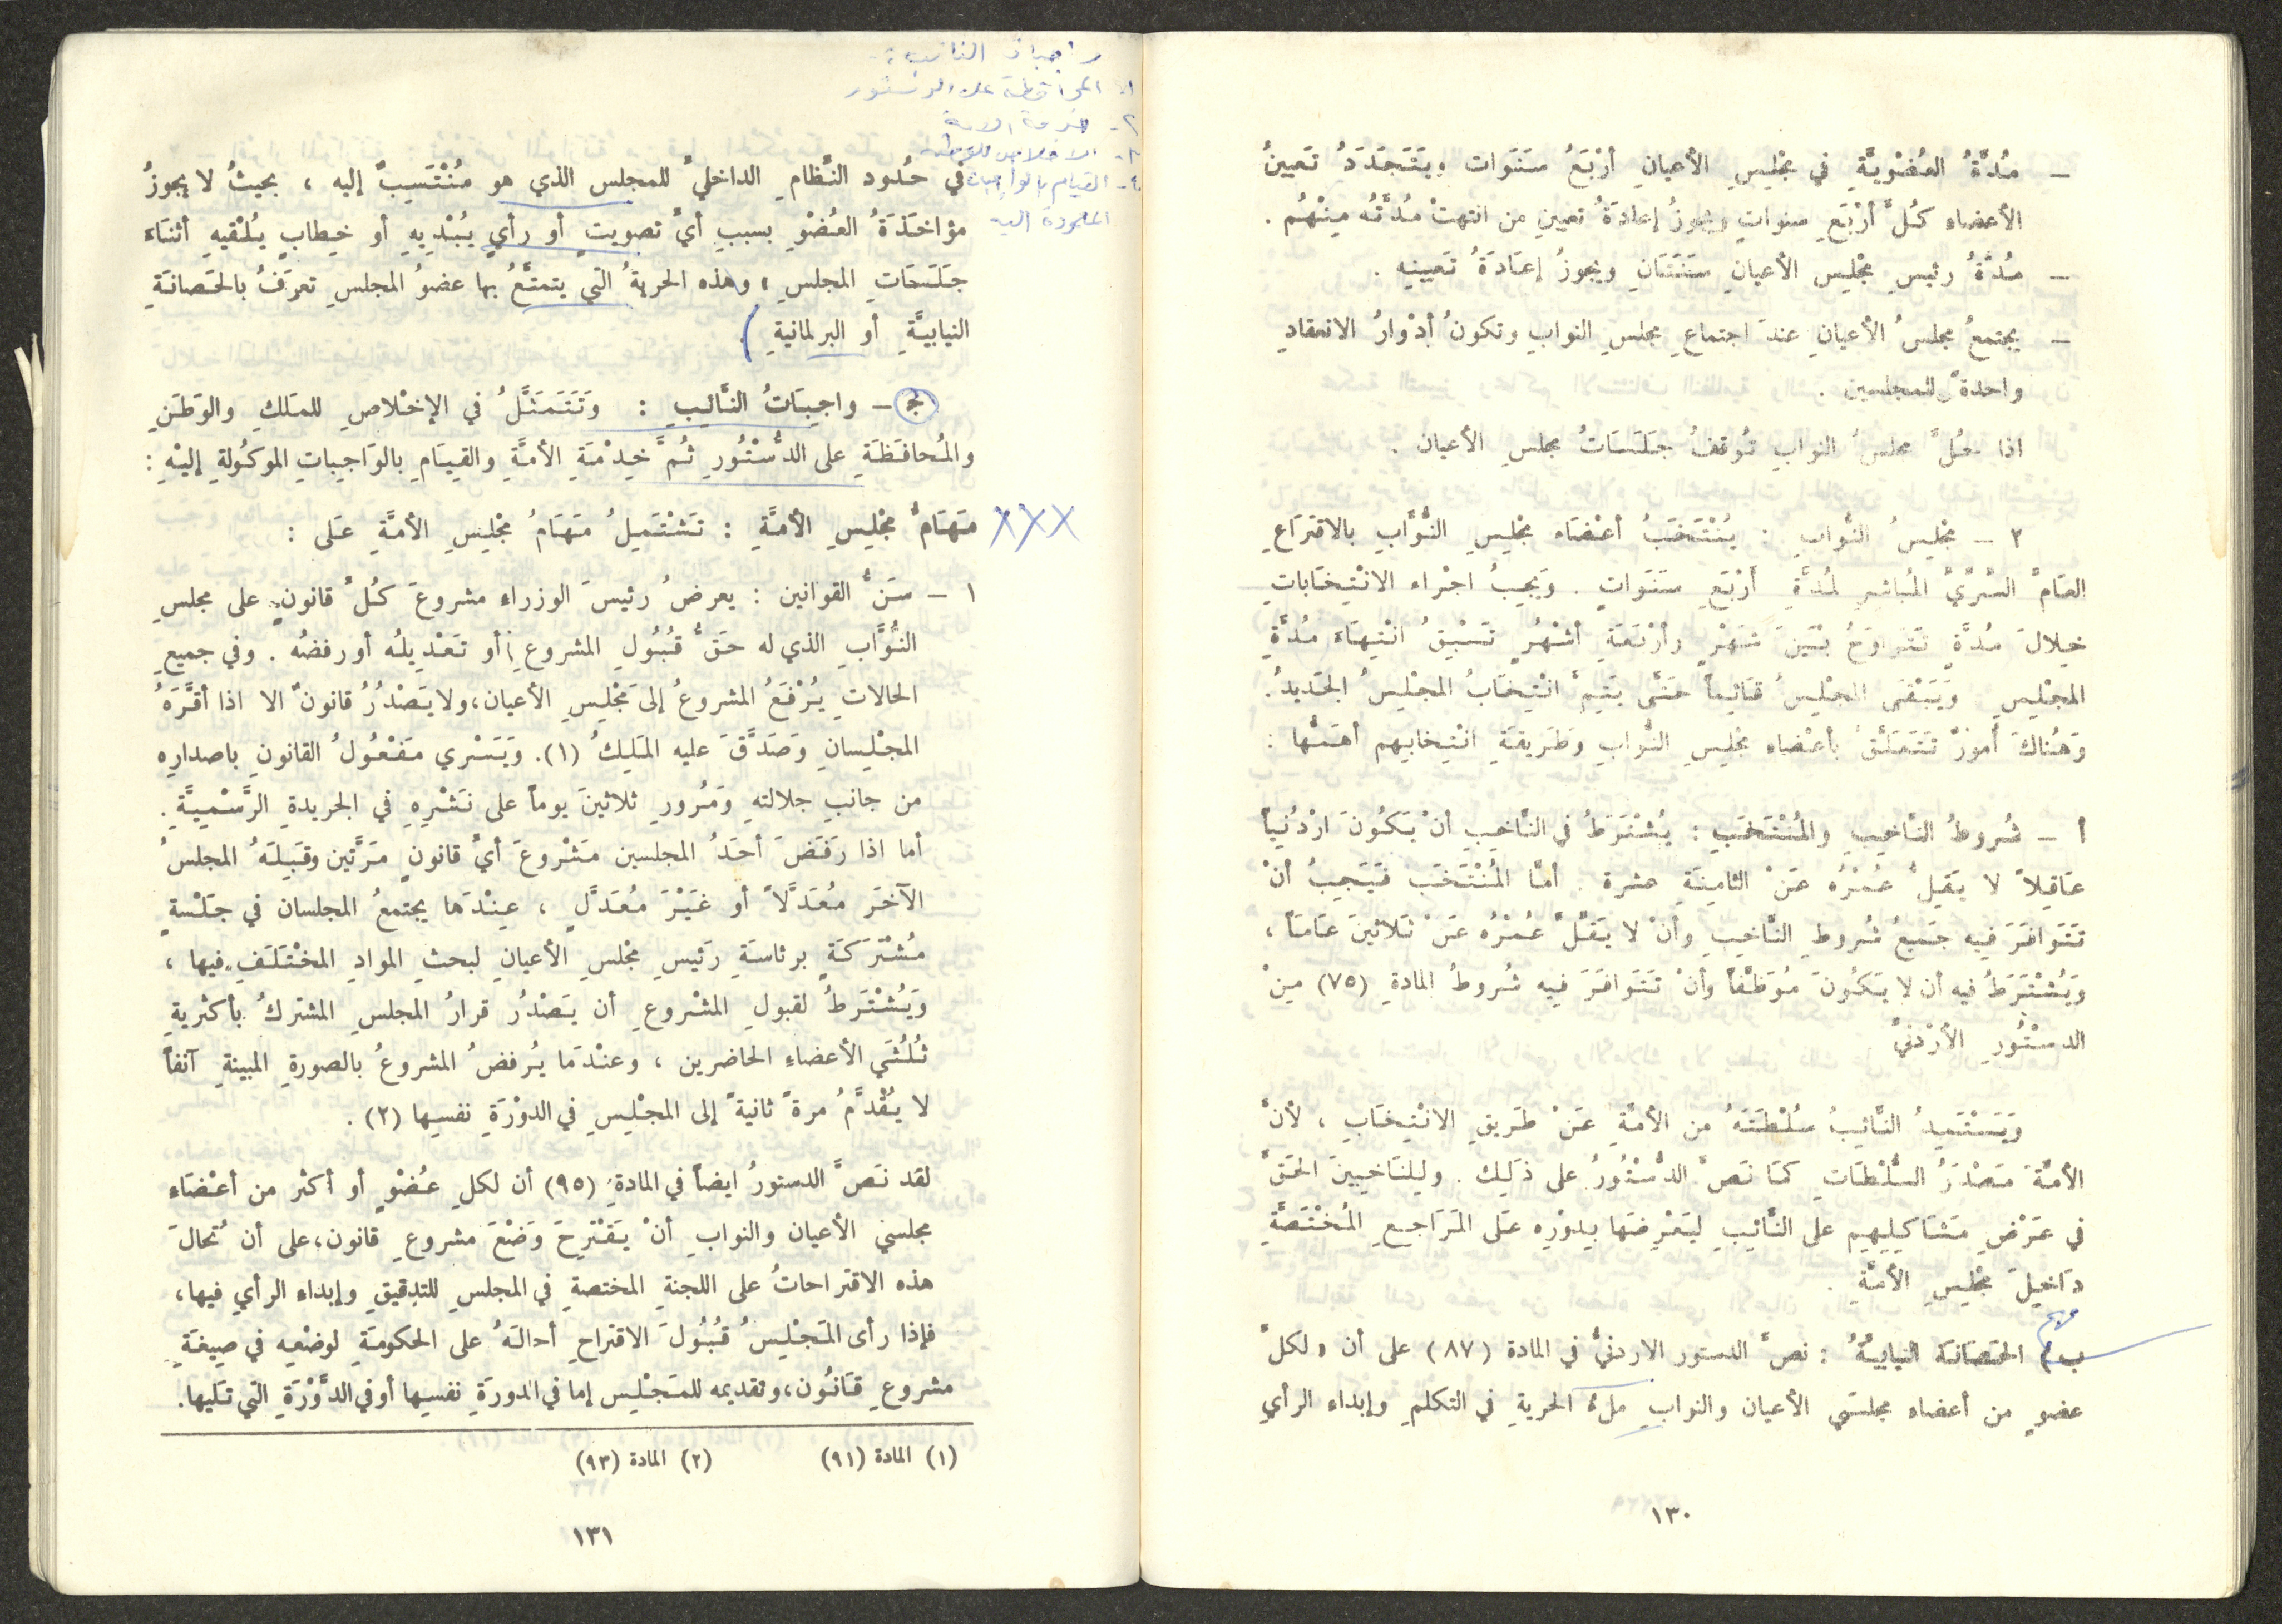 – مُدَّةُ العُضْوِيَّةِ في مَجْلِسِ الأعيانِ أرْبَعُ سَنَوَات ويَتَجَدَّدُ تَعيينُ
الأعضاء كُلَّ أرْبَعِ سنواتٍ ويجوزُ إعادَةُ تعيينِ من انتهتْ مُدَّتُه مِنْهُم .
– مُدَّةُ رئيسِ مَجْلِسِ الأعيانِ سَنَتَانِ ويجوزُ إعَادَةُ تَعيينِهِ .
– يجتمعُ مجلسُ الأعيانِ عندَ اجتماعِ مجلسِ النوابِ وتكونُ أدْوارُ الانعقادِ
واحدةً للمجلسين .
اذا حُلَّ مجلسُ النوابِ تُوقفُ جَلَسَاتُ مجلسِ الأعيان .
٢ – مَجْلِسُ النُّوابِ : يُنْتَخَبُ أعْضَاء مَجْلِسِ النُّوَّابِ بالاقتِرَاعِ
العَامِّ السِّرِّيِّ المُباشِرِ لمُدَّةِ أَرْبَعِ سَنَوَاتٍ . وَيَجِبُ اجْراء الانْتِخَاباتِ
خِلالَ مُدَّةٍ تَتَراوَحُ بَيْنَ شَهْرٍ وأرْبَعَةِ أشْهُرٍ تَسْبِقُ انْتِهَاءَ مُدَّةِ
المجْلِسِ وَيَبْقَى المجْلِسُ قَائِماً حَتَّى يَتِمَّ انْتِخَابُ المجْلِسُ الجَدِيدُ.
وَهُناكَ أمورٌ تَتَعَلَّقُ بأعْضَاءِ مَجْلِسِ النُّوابِ وَطَرِيقَةِ انْتِخابِهِم أهَمُّها :
أ – شُروطُ النَّاخِبِ والمُنْتَخَبِ : يُشْتَرَطُ في النَّاخِبِ أنْ يَكُونَ ارْدُنِياً
عَاقِلاً لا يَقِلُّ عُمْرُه عَنْ الثامِنَةِ عشرة . أمَّا المُنْتَخَب فَيَجِبُ أنْ
تَتَوَافَرَ فِيه جَمِيعُ شُروطِ النَّاخِبِ وأنْ لا يَقِلَّ عُمْرُه عَنْ ثَلاثينَ عَامَاً ،
وَيُشْتَرَطُ فيه أن لا يَكُونَ مُوَظَّفاً وأنْ تَتَوَافَرَ فِيه شُروطُ المادةِ (٧٥) مِنْ
الدستُورِ الأرْدُنيِّ
وَيَسْتَمِدُ النَّائِبُ سُلْطَتَهُ من الأمَّةِ عَنْ طَرِيقِ الانْتِخَابِ ، لأنَّ
الأمَّةَ مَصْدَرُ السُّلْطَاتِ كمَا نَصَّ الدُّسْتُورُ على ذَلِك . ولِلنَاخِبِينَ الحَقُّ
في عَرْضِ مَشَاكِلِهِم على النَّائِبِ لِيَعْرِضَها بِدَوْرِه عَلى المَرَاجِعِ المُخْتَصَّةِ
دَاخِلَ مَجْلِسِ الأمَّةِ .
مهم
ب) الحَصَانَة النيابيةُ : نصَّ الدستور الاردنيُّ في المادة (٨٧) على أن « لكلِّ
عضوٍ من أعضاء مجلسَي الأعيان والنوابِ ملءُ الحريةِ في التكلمِ وإبداء الرأيِ
١٣٠
واجبات النائب :-
١- المحافظة على الدستور
٢- خدمة الامة
٣- الاخلاص للوطن
٤- القيام بالواجبات
الموكولة إليه
في حُدُود النِّظامِ الداخليِّ للمجلس الذي هو مُنْتَسِبٌ إليه ، بحيثُ لا يجوزُ
مؤاخَذَةُ العُضْوِ بسببِ أيِّ تصويتٍ أو رأيٍ يُبْدِيهِ أو خِطابٍ يُلْقيهِ أثنَاءَ
جَلَسَاتِ المجلسِ » وهذه الحريةُ التي يتمتَّعُ بها عضوُ المجلسِ تعرَفُ بالحَصانَةِ
النيابيَّةِ أو البرلمانيةِ )
ج – واجِبَاتُ النَّائِبِ : وَتَتَمَثَّلُ في الإخْلاصِ للمَلكِ والوَطَنِ
والمُحافَظَةِ على الدُّسْتُورِ ثُمَّ خِدْمَةِ الأمَّةِ والقِيَامِ بالوَاجِباتِ الموكُولةِ إليْهِ :
XXX مَهَامُّ مَجْلِسِ الأمَّةِ : تَشْتَمِلُ مَهَامُ مَجْلِسِ الأمَّةِ عَلى :
١ – سَنُّ القوانين : يعرضُ رئيسَ الوزراء مشروعَ كُلِّ قانونٍ على مجلسِ
النُّوَّابِ الذي له حَقُّ قُبُولِ المشروعِ أو تَعْدِيلُه أو رفضُه . وفي جميعِ
الحالاتِ يُرْفَعُ المشروعُ إلى مَجْلِسِ الأعيان، ولا يَصْدُرُ قانونٌ الا اذا أقَرَّهُ
المجْلِسانِ وَصَدَّقَ عليه المَلِكُ (١). وَيَسْري مَفْعُولُ القانونِ باصدارِه
من جانبِ جلالتهِ وَمُرورِ ثلاثينَ يوماً على نَشْرِهِ في الجريدةِ الرَّسْمِيَّةِ .
أما اذا رَفَضَ أحَدُ المجلسين مَشْروعَ أيِّ قانونٍ مَرَّتين وقَبِلَهُ المجلسُ
الآخَرَ مُعَدَّلاً أو غَيْرَ مُعَدَّلٍ ، عِنْدَها يجتمعُ المجلسان في جَلْسةٍ
مُشْتَرَكَةٍ برئاسَةِ رَئيسِ مَجْلسِ الأعيانِ لبحثِ الموادِ المخْتَلَفِ فيها ،
وَيُشْتَرَطُ لقبولِ المشْروعِ أن يَصْدُرُ قرارُ المجلسِ المشتركُ بأكثريةِ
ثُلُثَي الأعضاء الحاضرين ، وعنْدَما يُرفضُ المشروعُ بالصورةِ المبينةِ آنفاً
لا يُقْدَّمُ مرةً ثانيةً إلى المجْلِسِ في الدوْرَةِ نفسِها (٢) .
لقد نَصَّ الدستورُ ايضاً في المادةِ (٩٥) أن لكلِ عُضْوٍ أو أكثر من أعْضَاء
مجلسي الأعيان والنوابِ أنْ يَقْتَرِحَ وَضْعَ مشروعِ قانون، على أن تُحالَ
هذه الاقتراحاتُ على اللجنةِ المختصةِ في المجلسِ للتدقيقِ وإبداء الرأيِ فيها،
فإذا رأى المَجْلِسُ قُبُولَ الاقتراحِ أحالَهُ على الحكومَةِ لوضْعِه في صِيغَةِ
مشروعِ قَانُون، وتقديمه للمَجْلِس إما في الدورَةِ نفسِها أو في الدَّوْرَةِ التي تَليها.
(١) المادة (٩١) (٢) المادة (٩٣)
١٣١